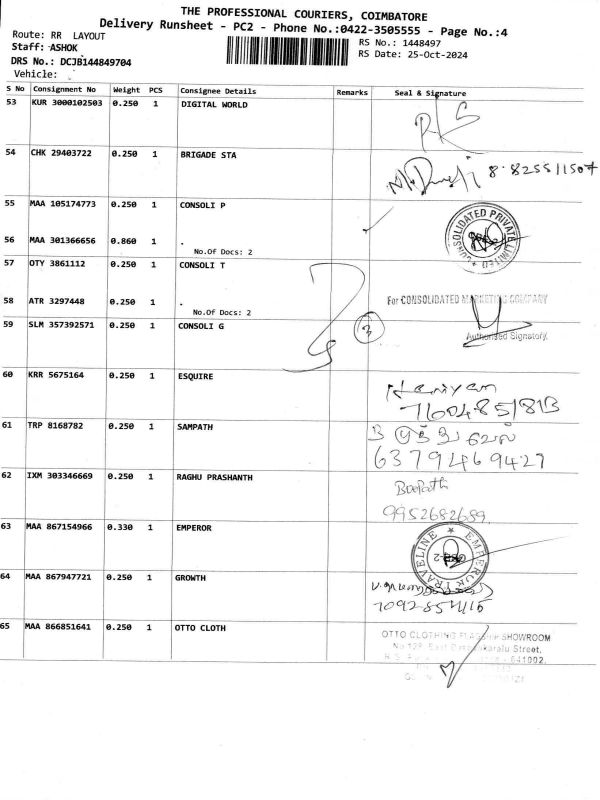 THE PROFESSIONAL COURIERS, COIMBATORE
Delivery Runsheet - PC2 - Phone No.:0422-3505555 - Page No.:4
Route: RR LAYOUT
RS No.: 1448497
Staff: ASHOK
RS Date: 25-Oct-2024
DRS No.: DCJB144849704
Vehicle:
S No Consignment No Weight PCS Consignee Details Remarks Seal & Signature
53 KUR 3000102503 0.250 1 DIGITAL WORLD
54 CHK 29403722 0.250 1 BRIGADE STA
55 MAA 105174773 0.250 1 CONSOLI P
56 MAA 301366656 0.860 1 .
No.Of Docs: 2
57 OTY 3861112 0.250 1 CONSOLI T
58 ATR 3297448 0.250 1 .
No.Of Docs: 2
For CONSOLIDATED MARKETING COMPANY
59 SLM 357392571 0.250 1 CONSOLI G
3
Authorised Signatory.
60 KRR 5675164 0.250 1 ESQUIRE
61 TRP 8168782 0.250 1 SAMPATH
6379469427
62 IXM 303346669 0.250 1 RAGHU PRASHANTH
9952682689
63 MAA 867154966 0.330 1 EMPEROR
EMPEROR TRAVELINE
64 MAA 867947721 0.250 1 GROWTH
65 MAA 866851641 0.250 1 OTTO CLOTH
OTTO CLOTHING FLAGSHIP SHOWROOM
641002.